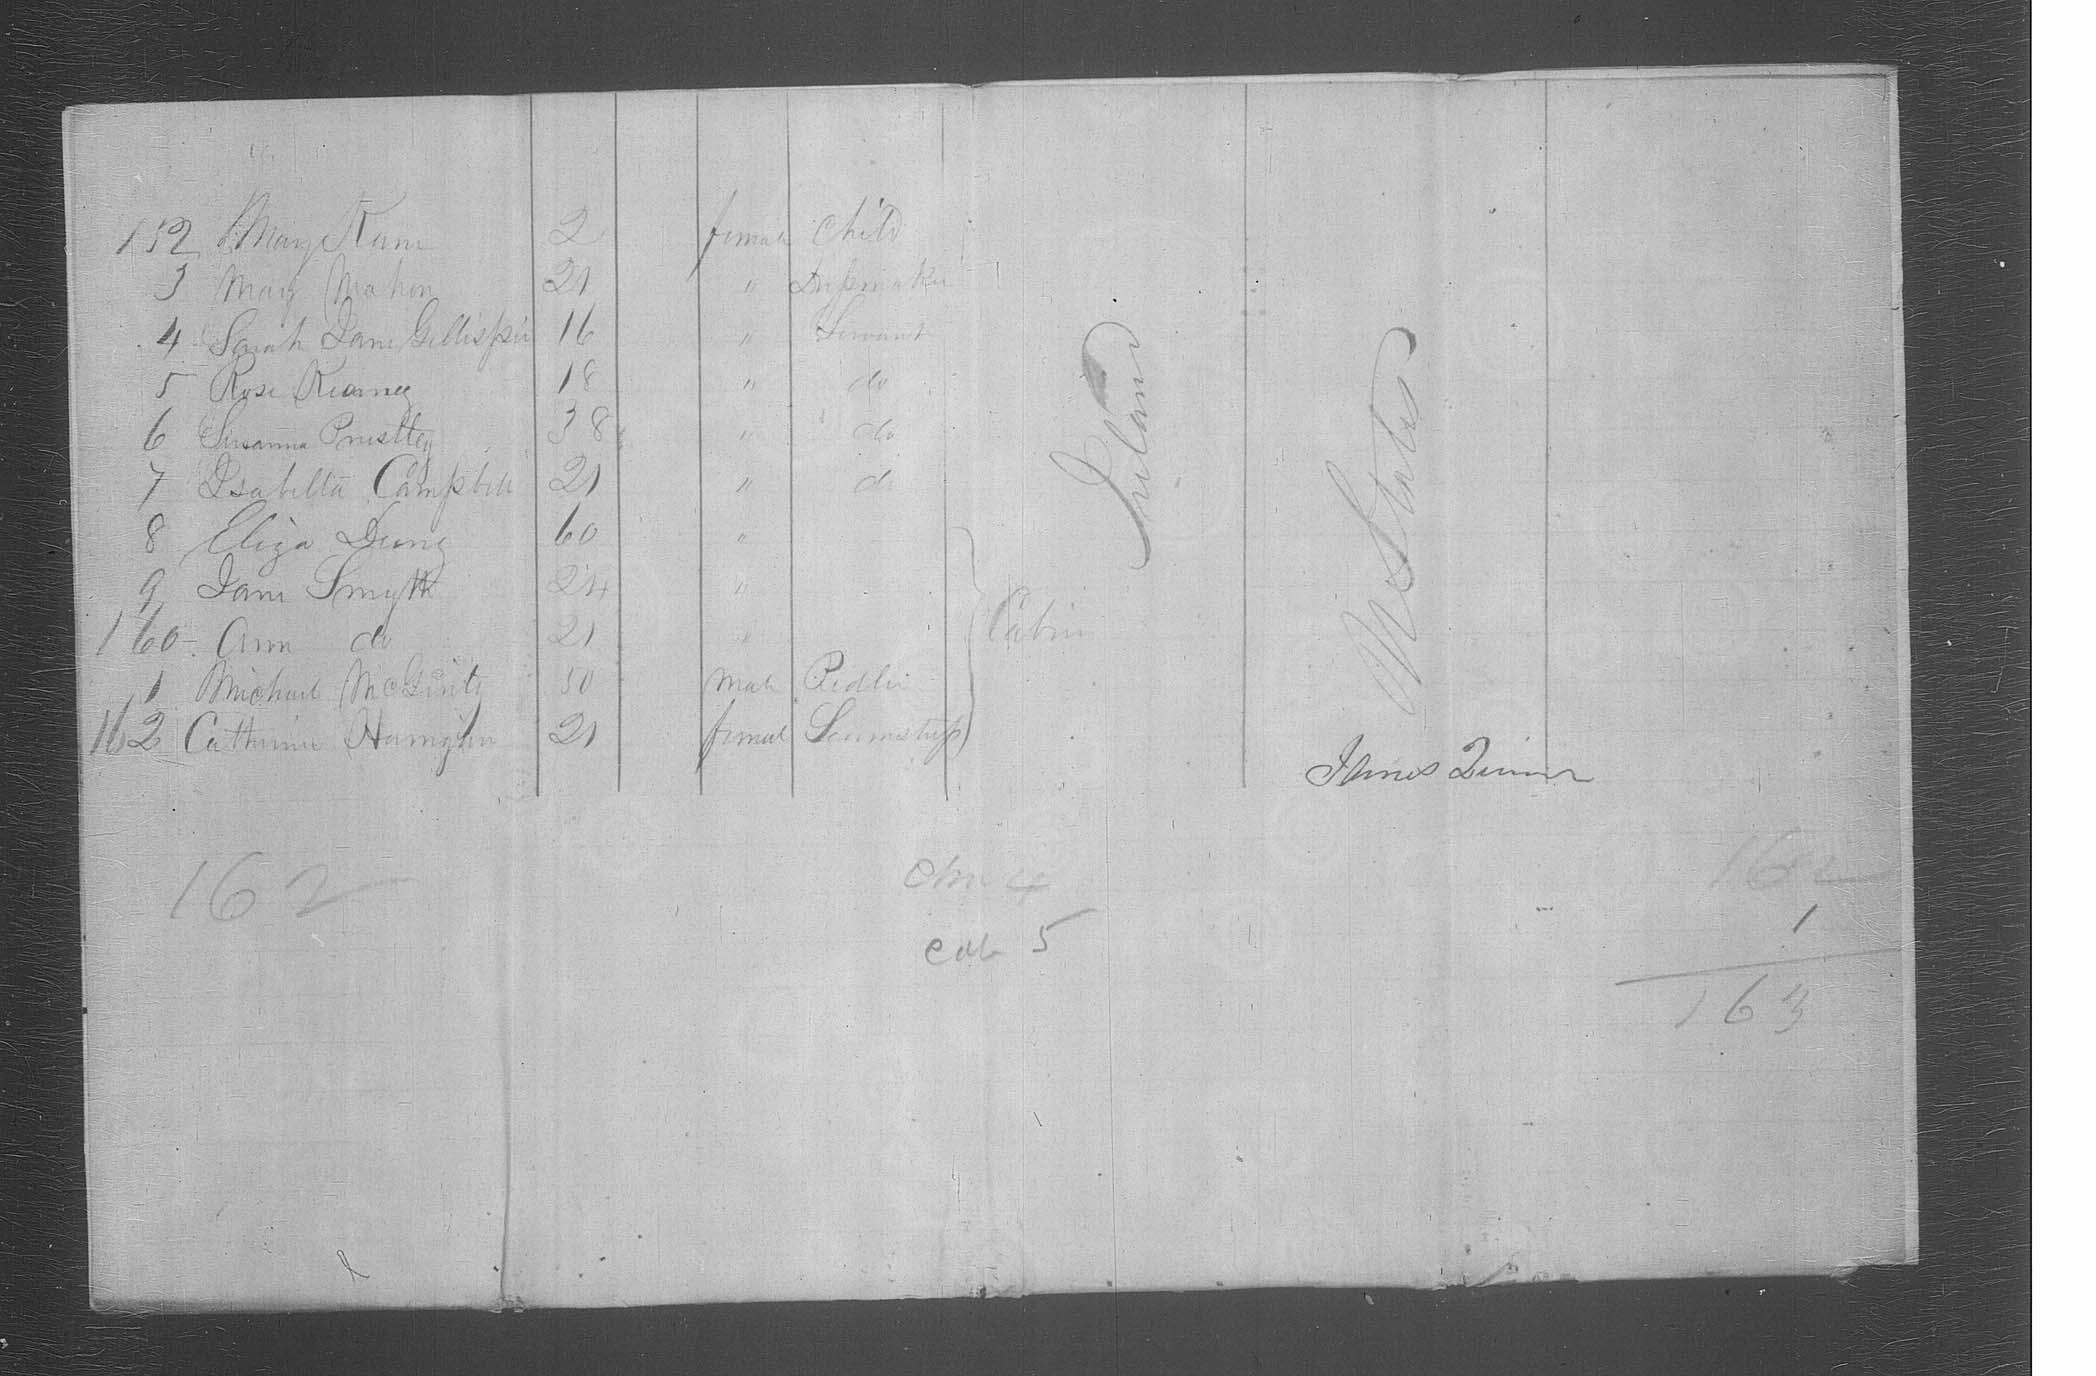 152 Mary Kane 2 female Child
3 Mary Mahon 21 " Dressmaker
4 Sarah Jane Gillispie 16 " Servant
5 Rose Kearney 18 " do
6 Susanna Priestley 38 " do
7 Isabella Campbell 21 " do
8 Eliza 60 "
9 Jane Smyth 24 "
160 Ann do 21 "
Cabin
1 Michael McGinty 50 male Pedler
162 Catherine 21 female Seamstress
Ireland
U States
James
162
cab 5
162
1
163